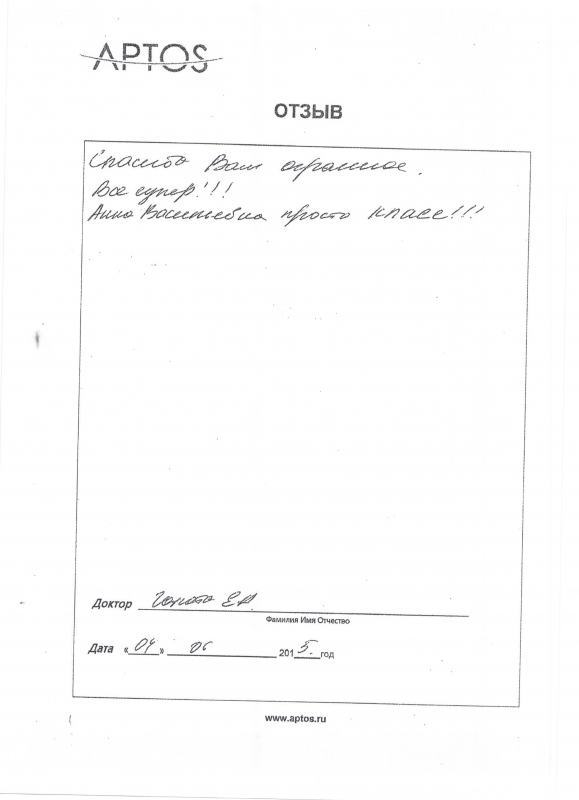 APTOS
ОТЗЫВ
Спасибо Вам огромное.
Все супер!!!
Анна Васильевна просто класс!!!
Доктор Е.Н.
Фамилия Имя Отчество
Дата «04» 06 2015 год
www.aptos.ru